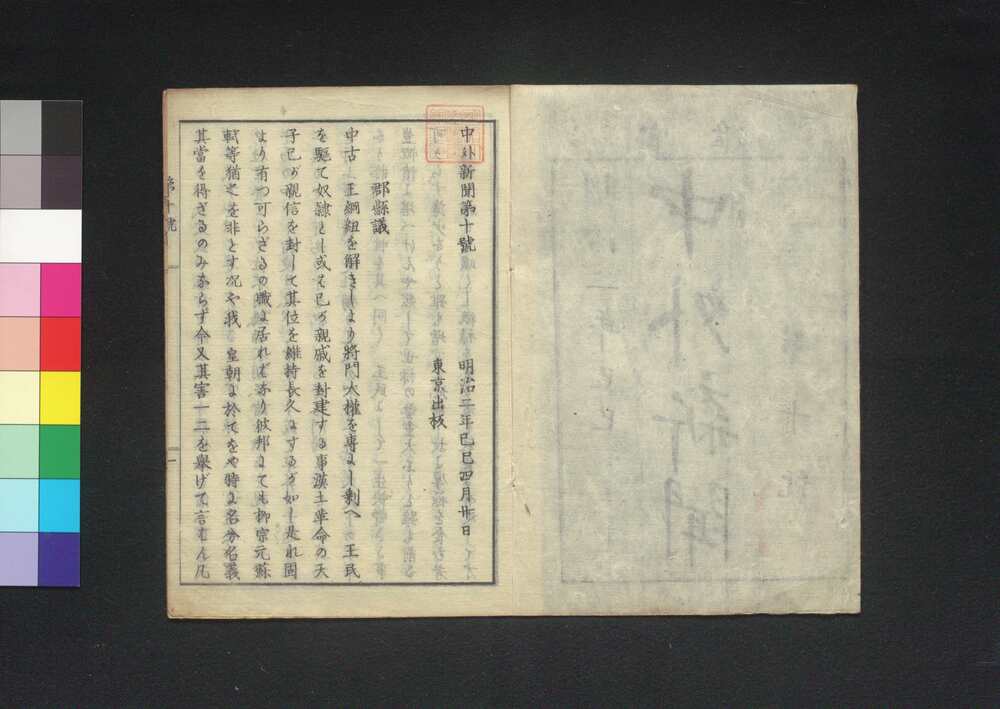 中外新聞第十號 明治二年己巳四月廿日
東京出板
郡縣議
中古 王綱紐を解きしより將門大權を專にし剩へ 王民
を驅て奴隷とし或は己が親戚を封建する事漢土革命の天
子己が親信を封して其位を維持長久にするが如し是れ固
より有つ可らざるの職に居ればなり彼邦にても柳宗元蘇
軾等猶之を非とす况や我 皇朝に於てをや時に名分名義
其當を得ざるのみならず今又其害一二を擧げて言はん凡
第十號
一
中外新聞